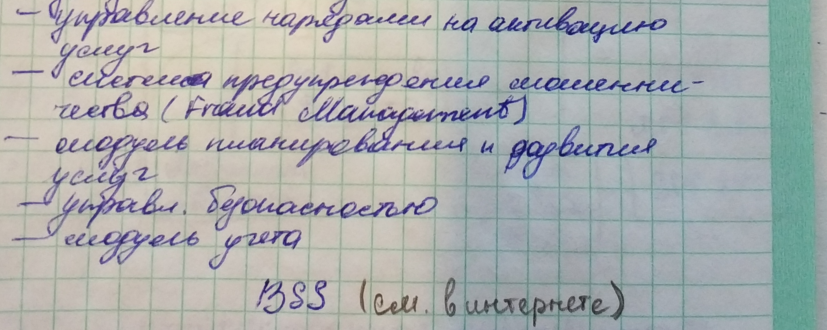 – управление нарядами на активацию
услуг
– система предупреждения мошенни-
чества (Fraud Management)
– модуль планирования и развития
услуг
– управл. безопасностью
– модуль учета
BSS (см. в интернете)